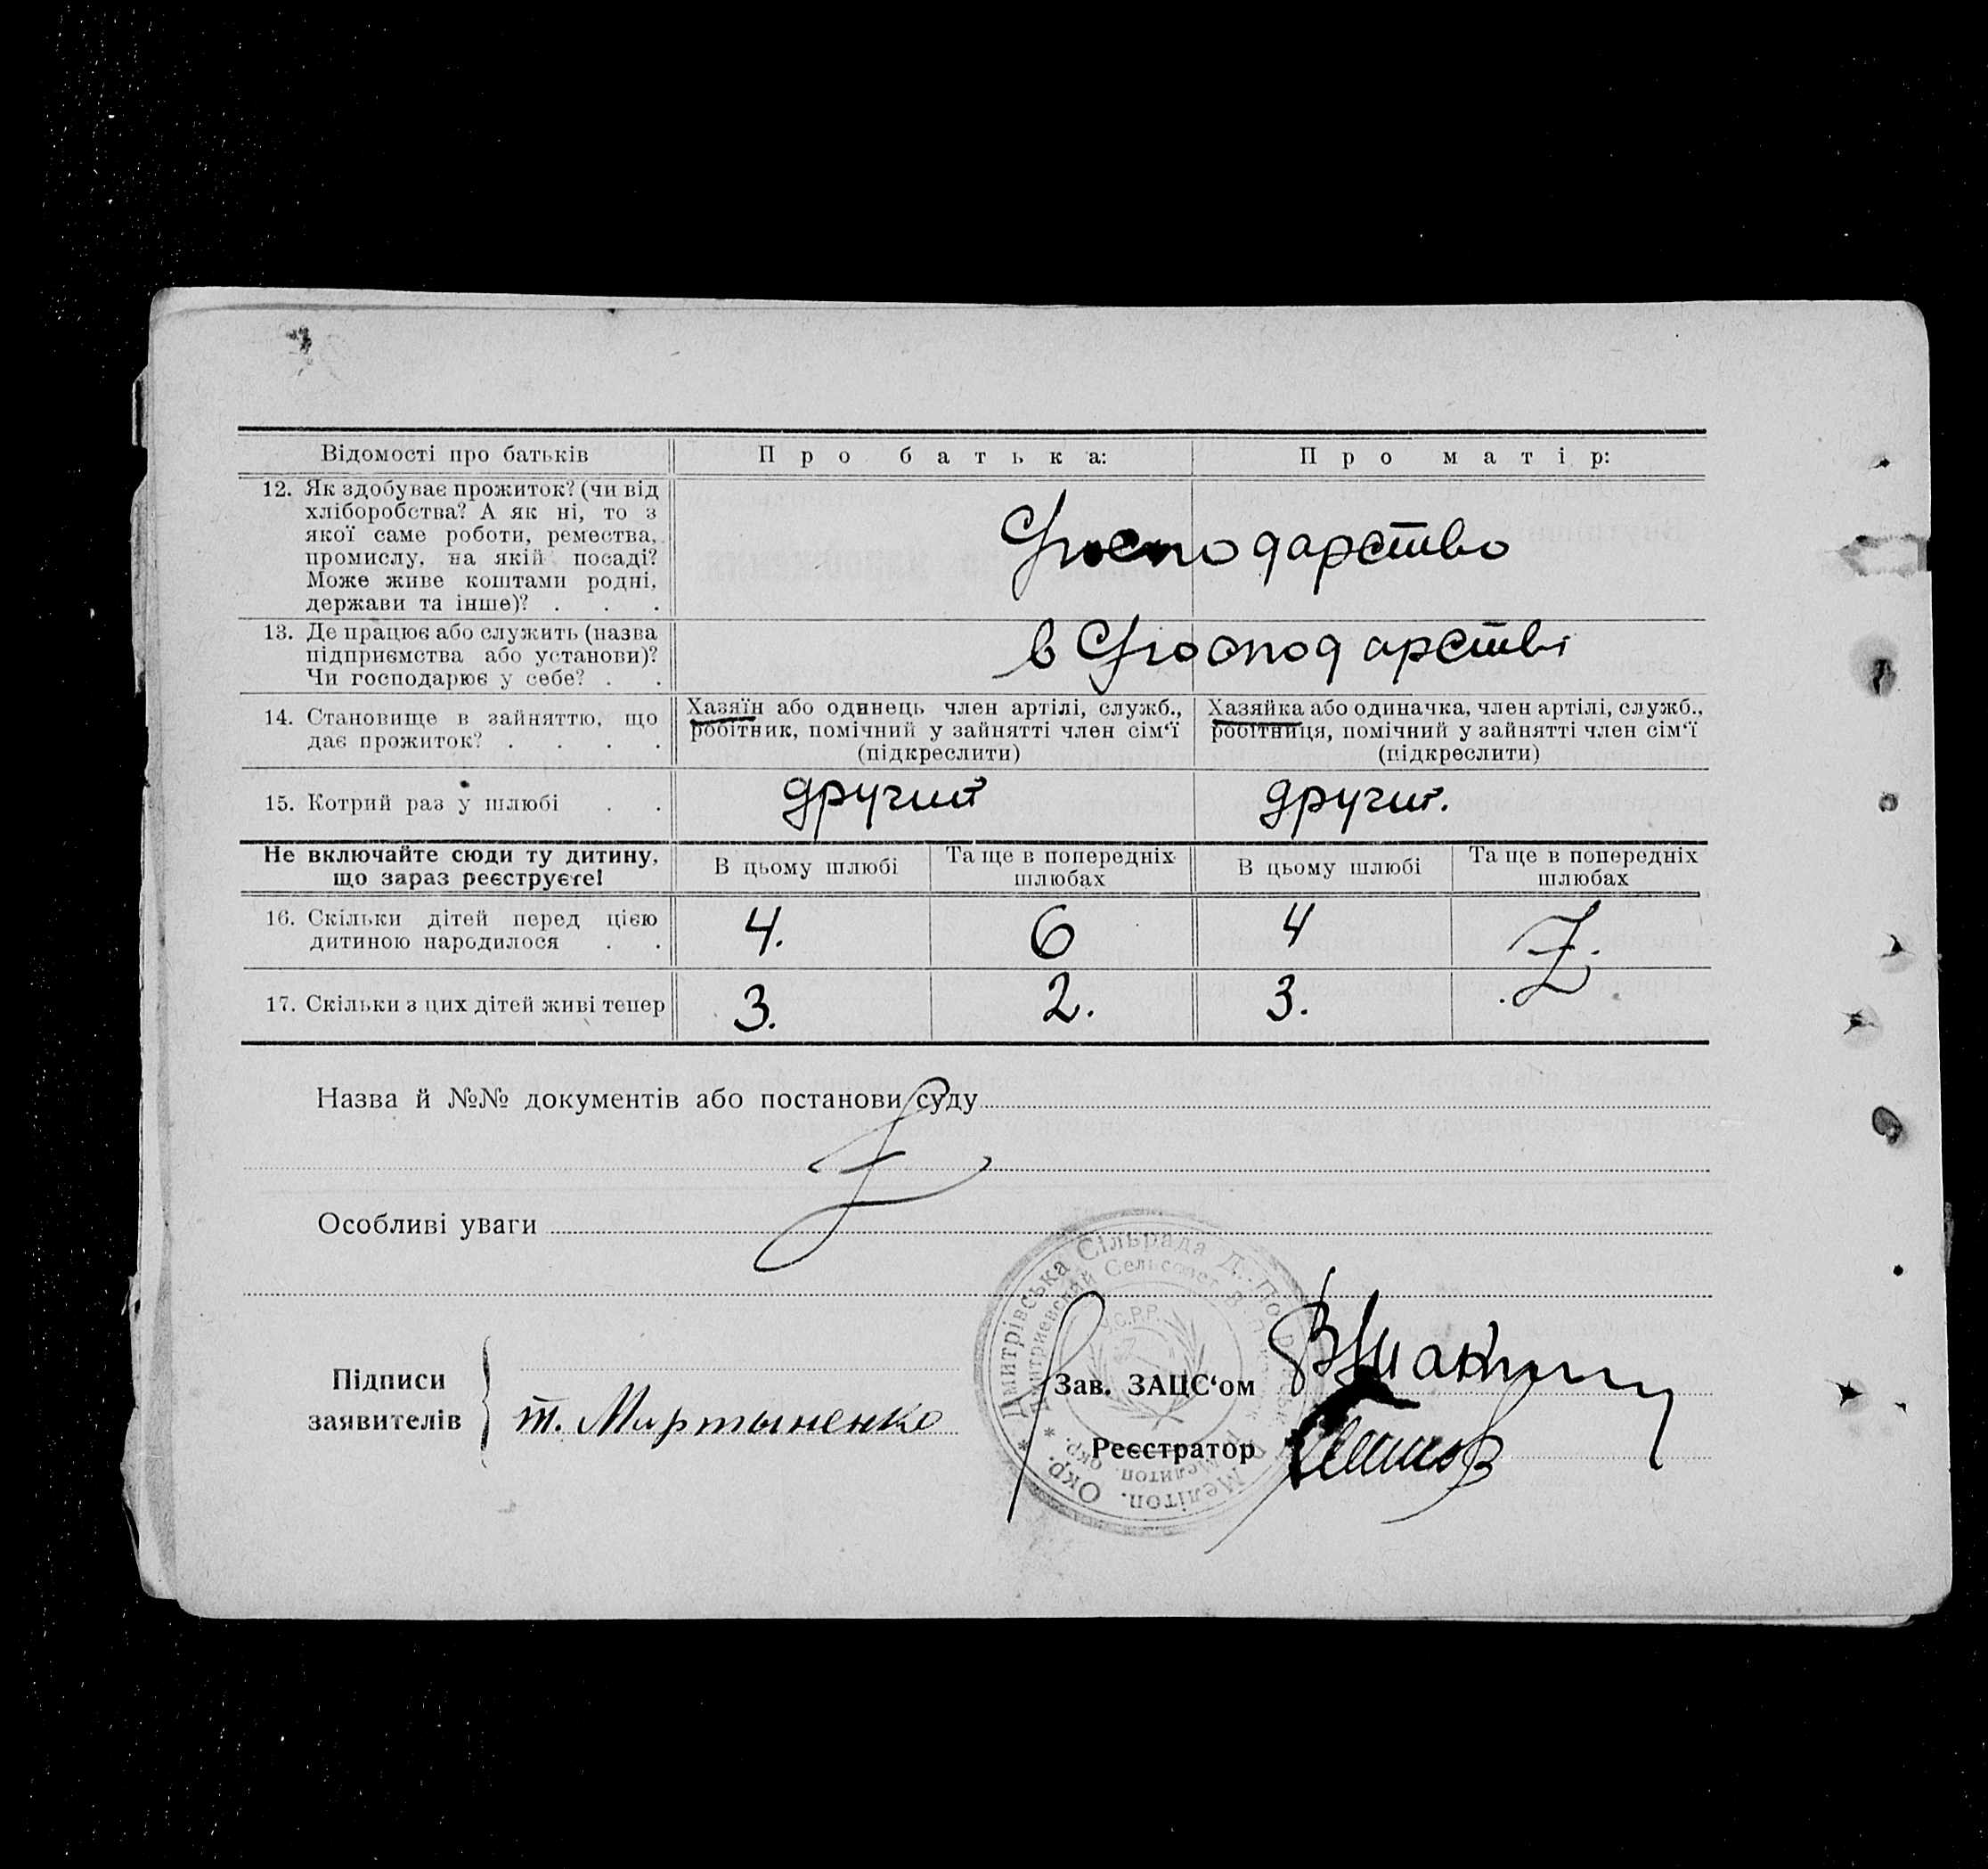 Відомості про батьків
Про батька:
Про матір:
12. Як здобуває прожиток? (чи від
хліборобства? А як ні, то з
якої саме роботи, ремества,
промислу, на якій посаді?
Може живе коштами родні,
держави та інше)? . . .
Господарство
13. Де працює або служить (назва
підприємства або установи)?
Чи господарює у себе? . .
в Господарстві
14. Становище в зайняттю, що
дає прожиток? . . . .
Хазяїн або одинець член артілі, служб.,
робітник, помічний у зайнятті член сім‘ї
(підкреслити)
Хазяйка або одиначка, член артілі, служб.,
робітниця, помічний у зайнятті член сім‘ї
(підкреслити)
15. Котрий раз у шлюбі . .
другий
другий.
Не включайте сюди ту дитину,
що зараз реєструєте!
В цьому шлюбі
Та ще в попередніх
шлюбах
В цьому шлюбі
Та ще в попередніх
шлюбах
16. Скільки дітей перед цією
дитиною народилося . .
4.
6
4
17. Скільки з цих дітей живі тепер
3.
2.
3.
Назва й №№ документів або постанови суду
Особливі уваги
Підписи
заявителів
т. Мартыненко
Зав. ЗАЦС‘ом
Реєстратор
Дмитрівська Сільрада
Мелітоп. Окр.
Дмитриевский Сельсовет
Мелитоп. окр.
У.С.Р.Р.